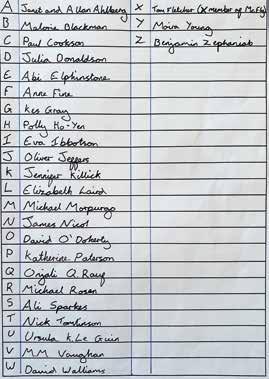 A Janet and Allan Ahlberg
B Malorie Blackman
C Paul Cookson
D Julia Donaldson
E Abi Elphinstone
F Anne Fine
G Kes Gray
H Polly Ho-Yen
I Eva Ibbotson
J Oliver Jeffers
K Jennifer Killick
L Elizabeth Laird
M Michael Morpurgo
N James Nicol
O David O'Doherty
P Katherine Paterson
Q Onjali Q. Rauf
R Michael Rosen
S Ali Sparkes
T Nick Tomlinson
U Ursula K. Le Guin
V M.M. Vaughan
W David Walliams
X Tom Fletcher (X member of McFly)
Y Moira Young
Z Benjamin Zephaniah